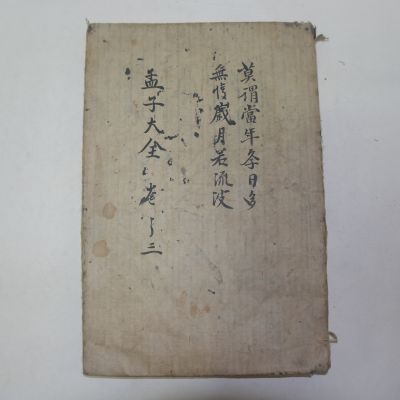 莫謂當年冬日多
無情歲月若流波
孟子大全 卷之三